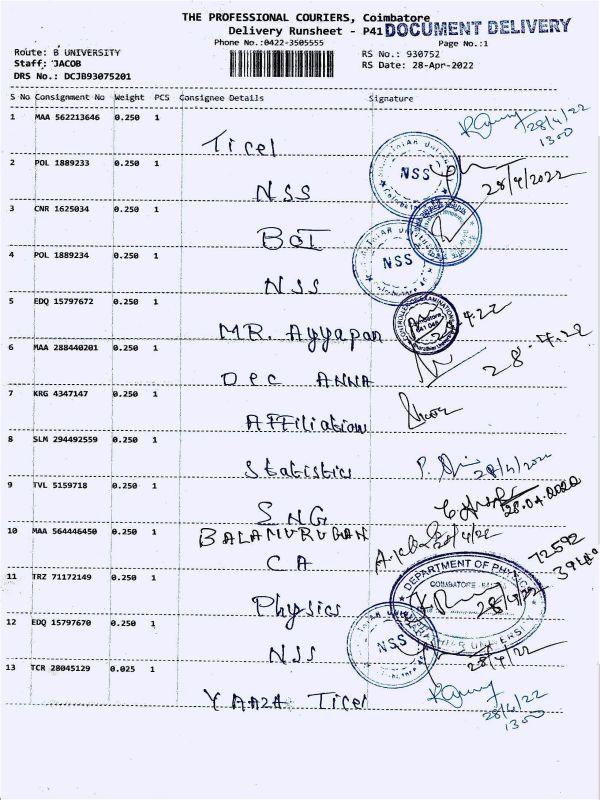 THE PROFESSIONAL COURIERS, Coimbatore
Delivery Runsheet - P41
DOCUMENT DELIVERY
Phone No.:0422-3505555
Page No.:1
Route: B UNIVERSITY
RS No.: 930752
Staff: JACOB
RS Date: 28-Apr-2022
DRS No.: DCJB93075201
S No Consignment No Weight PCS Consignee Details Signature
1 MAA 562213646 0.250 1
28/4/22
1300
Ticel
2 POL 1889233 0.250 1
NSS
28/4/2022
NSS
3 CNR 1625034 0.250 1
BOI
4 POL 1889234 0.250 1
NSS
NSS
5 EDQ 15797672 0.250 1
MR. Ayyapan
28.4.22
6 MAA 288440201 0.250 1
28.4.22
DEC ANNA
7 KRG 4347147 0.250 1
Affiliation
8 SLM 294492559 0.250 1
Statistics
28/4/2022
9 TVL 5159718 0.250 1
SNG
10 MAA 564446450 0.250 1
BALAMURUGAN
CA
72592
11 TRZ 71172149 0.250 1
DEPARTMENT OF PHYSICS
COIMBATORE
Physics
28/4/22
12 EDQ 15797670 0.250 1
NSS
NSS
28/4/22
13 TCR 28045129 0.025 1
YAAZA Ticel
28/4/22
1300